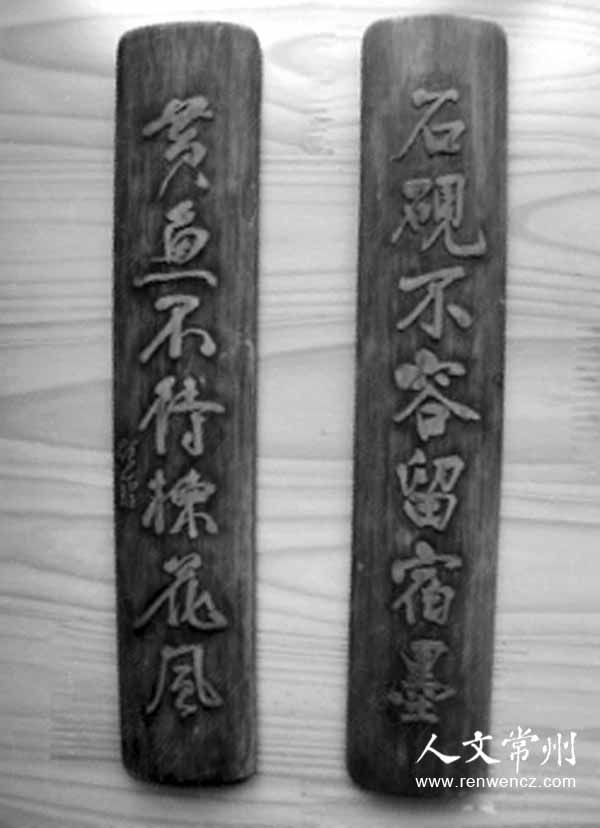 石硯不容留宿墨
黄魚不待楝花風
人文常州
www.renwencz.com